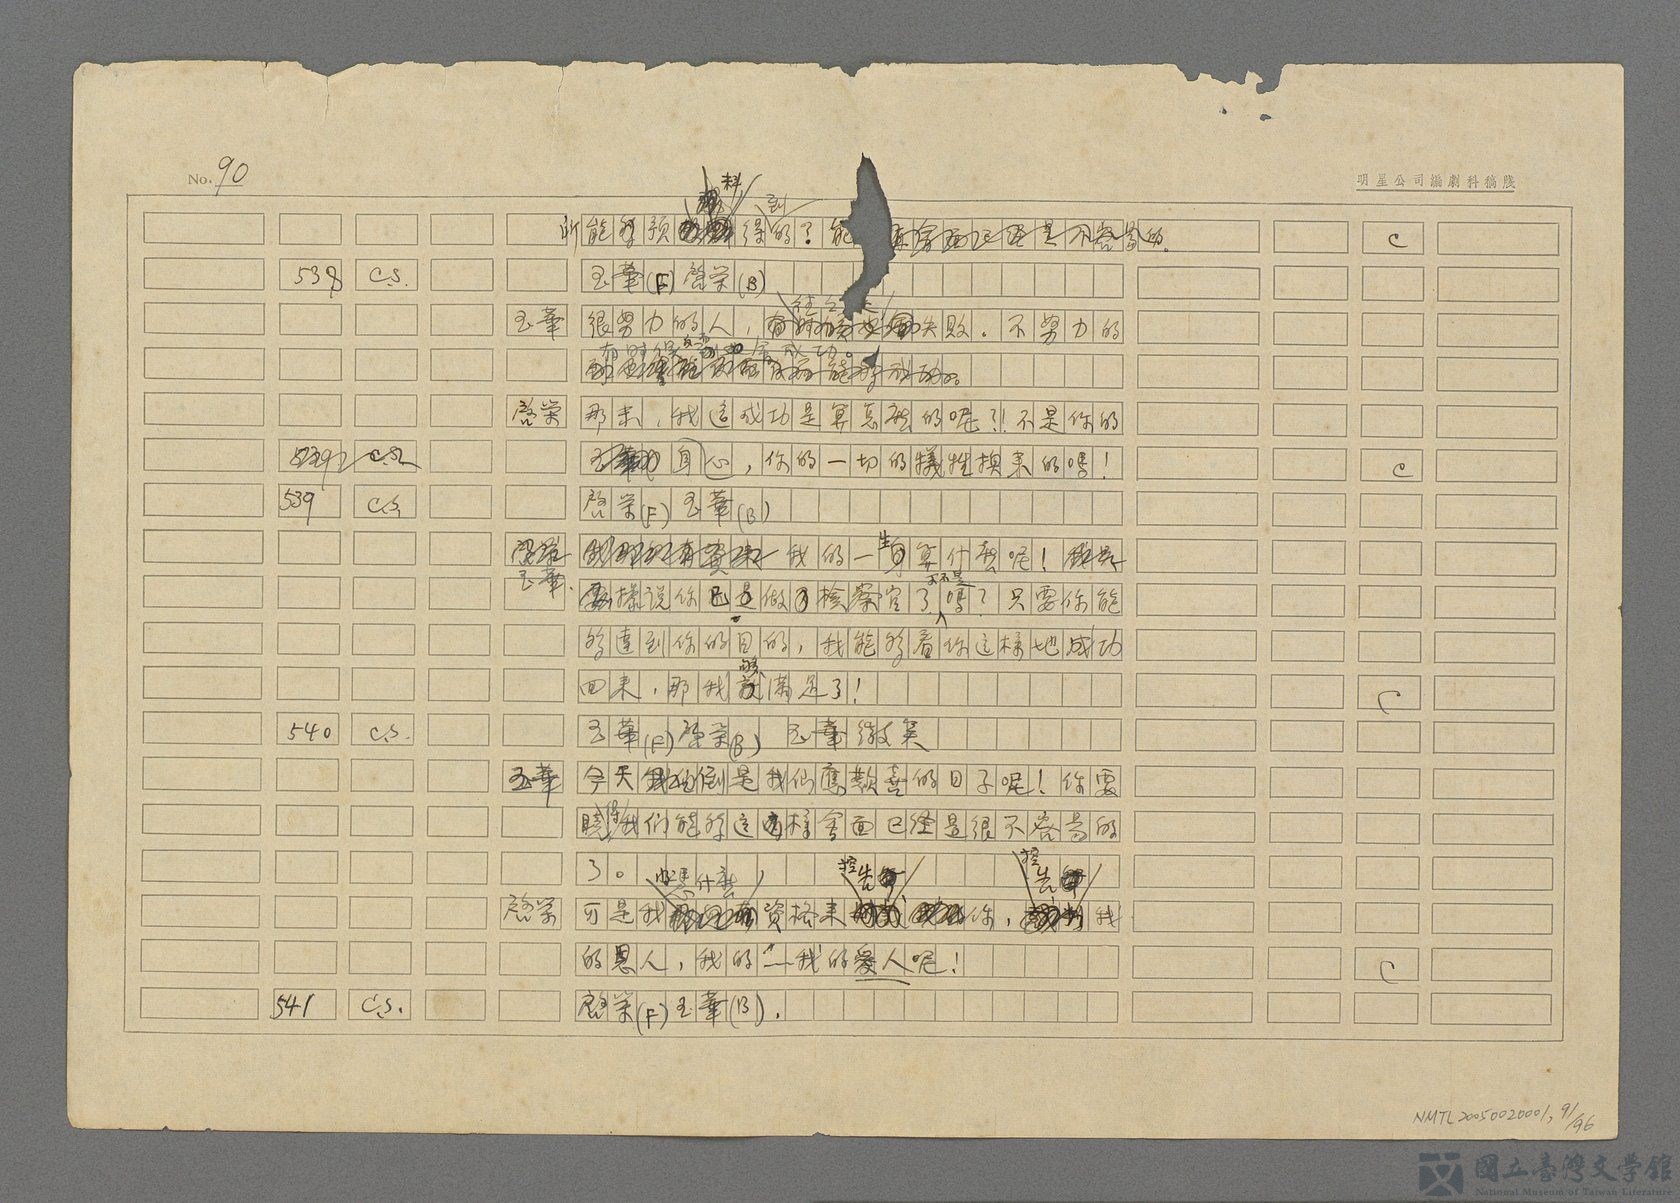 No. 90
明星公司編劇科稿牋
所能夠預料得到的?
C
538 C.S. 玉華(F) 啓榮(B)
玉華 很努力的人,往往失敗.不努力的
有時候反而會成功。
啓榮 那末,我這成功是算怎麽的呢?!不是你的
身心,你的一切的犧牲換來的嗎!
C
539 C.S. 啓榮(F) 玉華(B)
玉華. 我的一生算什麽呢!
據說你已是做了檢察官了,不是嗎?只要你能
夠達到你的目的,我能夠看你這樣地成功
回來,那我就夠滿足了!
C
540 C.S. 玉華(F) 啓榮(B) 玉華微笑
玉華 今天倒是我们應歡喜的日子呢!你要
曉得我们能夠這樣會面已経是很不容易的
了。
啓榮 可是我憑什麽資格來控告你,控告我
的恩人,我的……我的愛人呢!
C
541 C.S. 啓榮(F) 玉華(B).
NMTL20050020001, 91/96
國立臺灣文學館
National Museum of Taiwan Literature